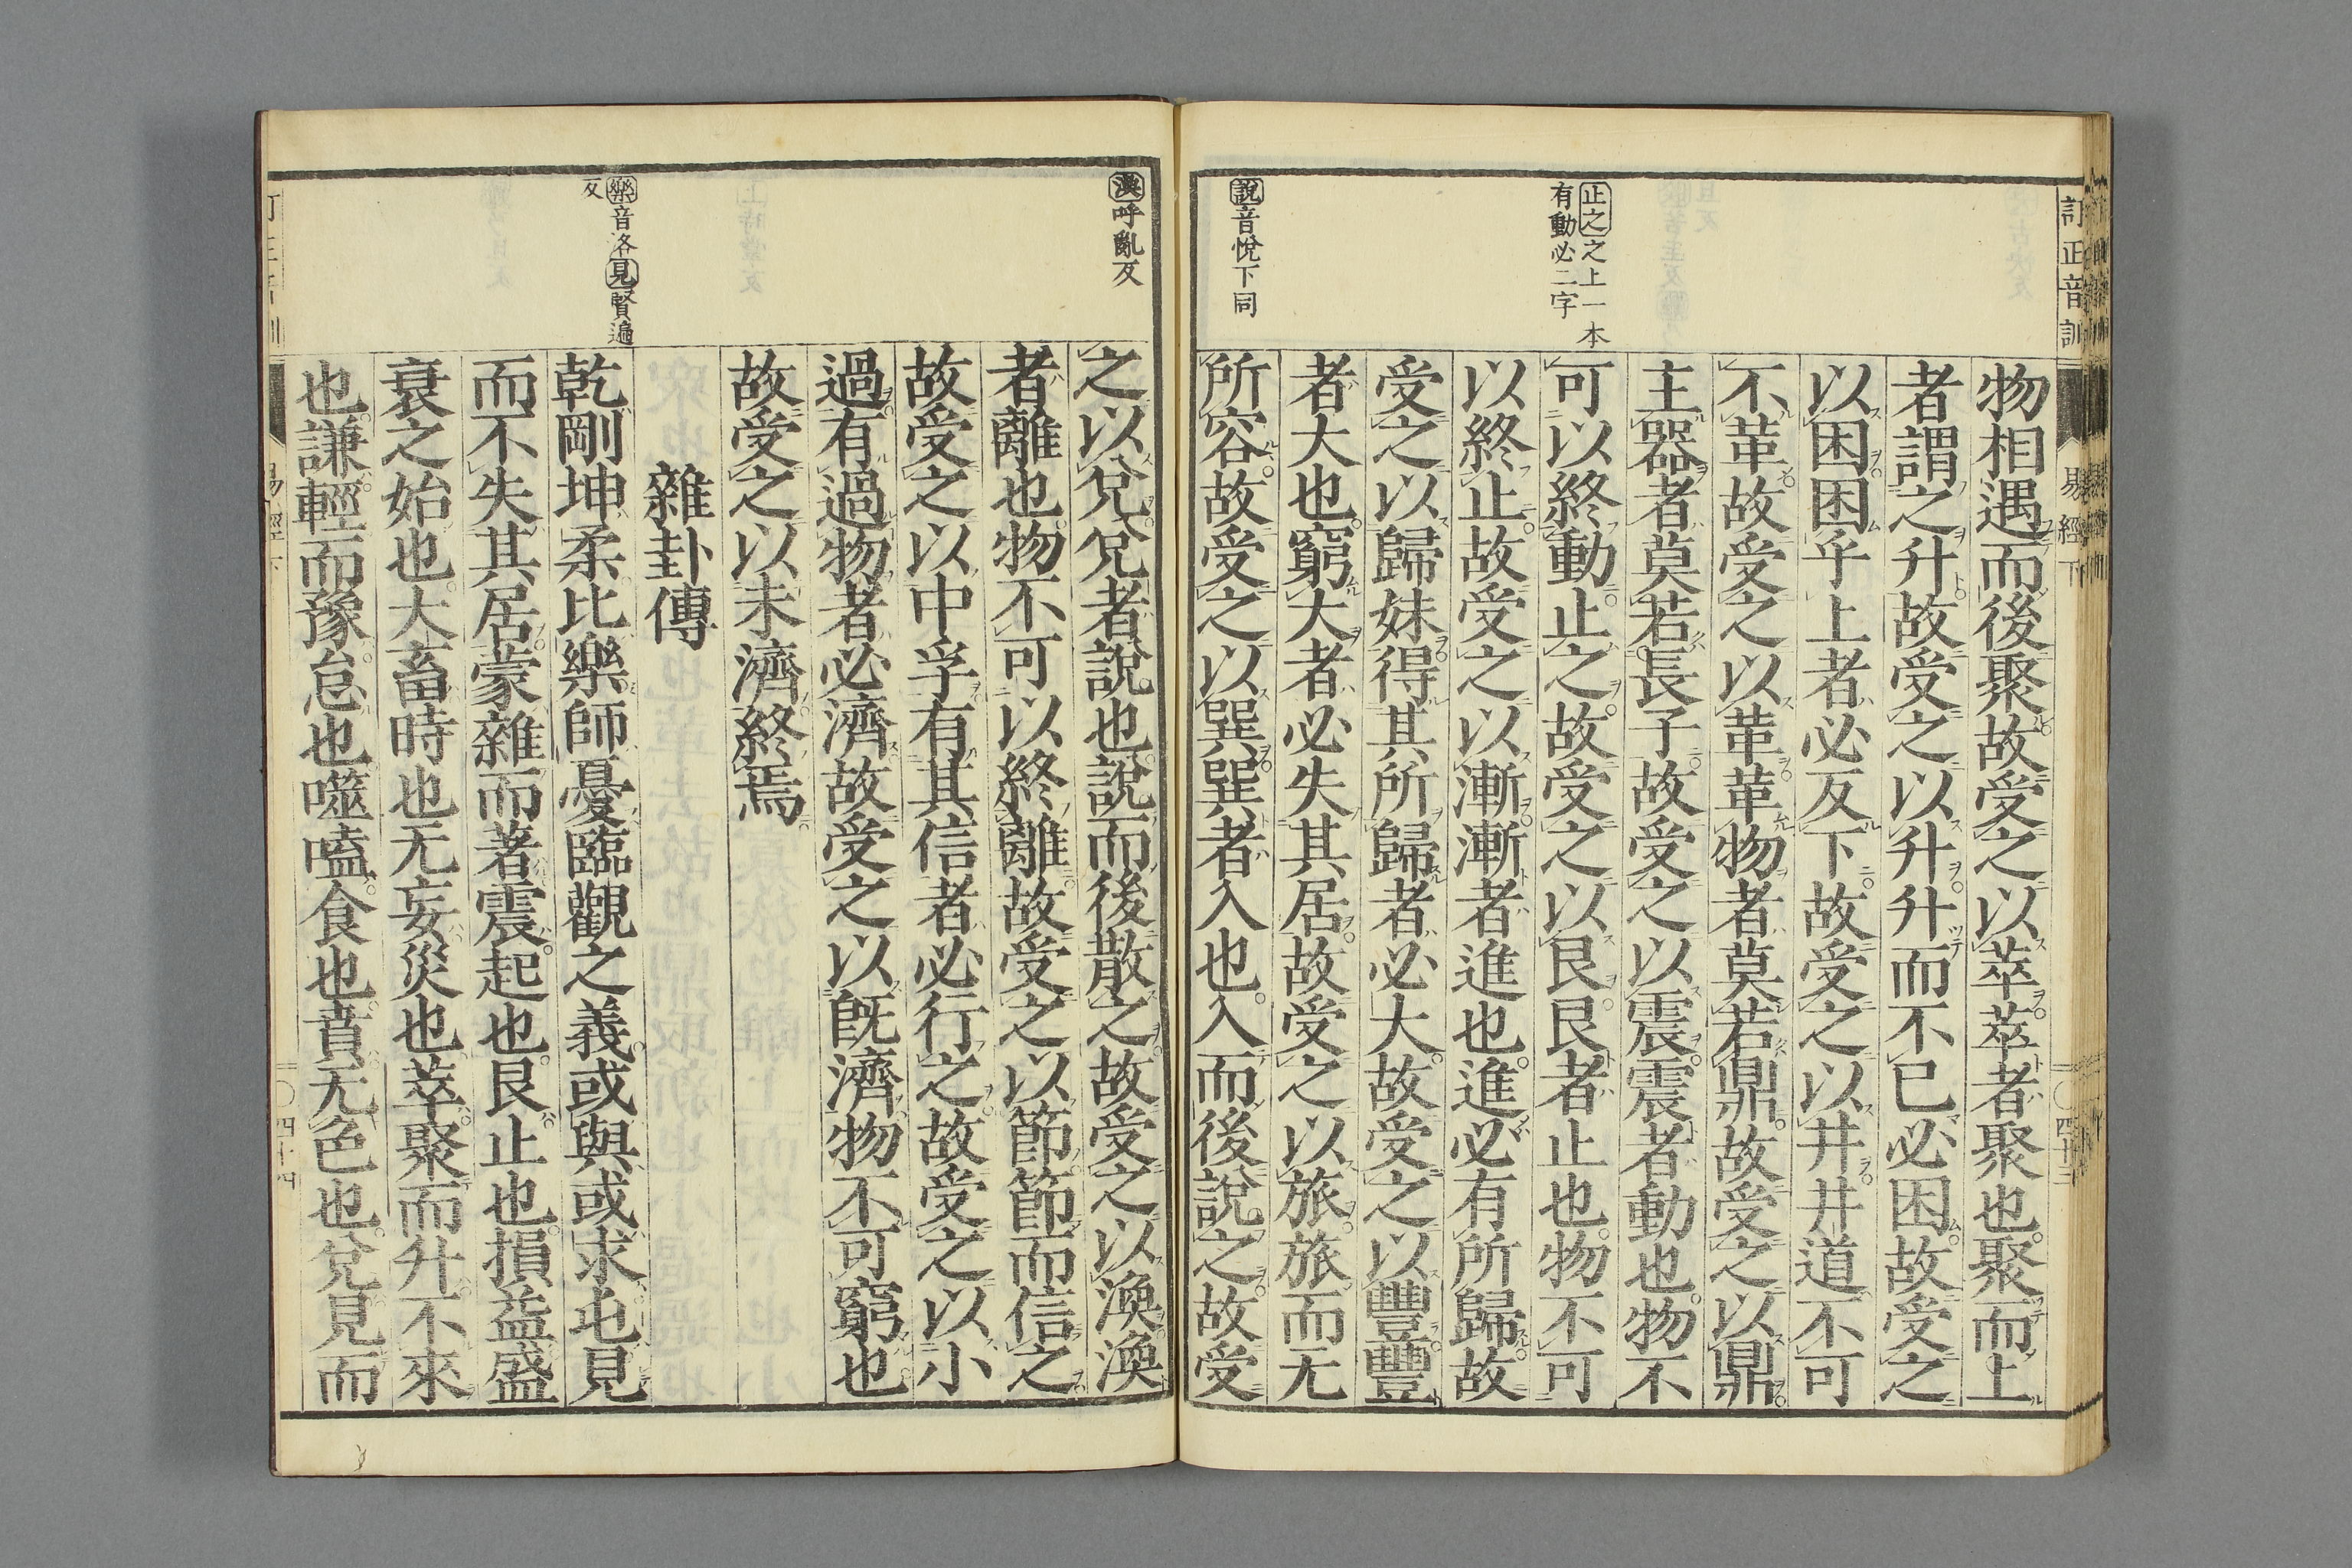 訂正音訓
易經下
〇四十三
止之之上一本
有動必二字
說音悅下同
物相遇而後聚故受之以萃萃者聚也聚而上
者謂之升故受之以升升而不已必困故受之
以困困乎上者必反下故受之以井井道不可
不革故受之以革革物者莫若鼎故受之以鼎
主器者莫若長子故受之以震震者動也物不
可以終動止之故受之以艮艮者止也物不可
以終止故受之以漸漸者進也進必有所歸故
受之以歸妹得其所歸者必大故受之以豐豐
者大也窮大者必失其居故受之以旅旅而无
所容故受之以巽巽者入也入而後說之故受
渙呼亂反
樂音洛見賢遍
反
之以兌兌者說也說而後散之故受之以渙渙
者離也物不可以終離故受之以節節而信之
故受之以中孚有其信者必行之故受之以小
過有過物者必濟故受之以旣濟物不可窮也
故受之以未濟終焉
雜卦傳
乾剛坤柔比樂師憂臨觀之義或與或求屯見
而不失其居蒙雜而著震起也艮止也損益盛
衰之始也大畜時也无妄災也萃聚而升不來
也謙輕而豫怠也噬嗑食也賁无色也兌見而
易經下
〇四十四